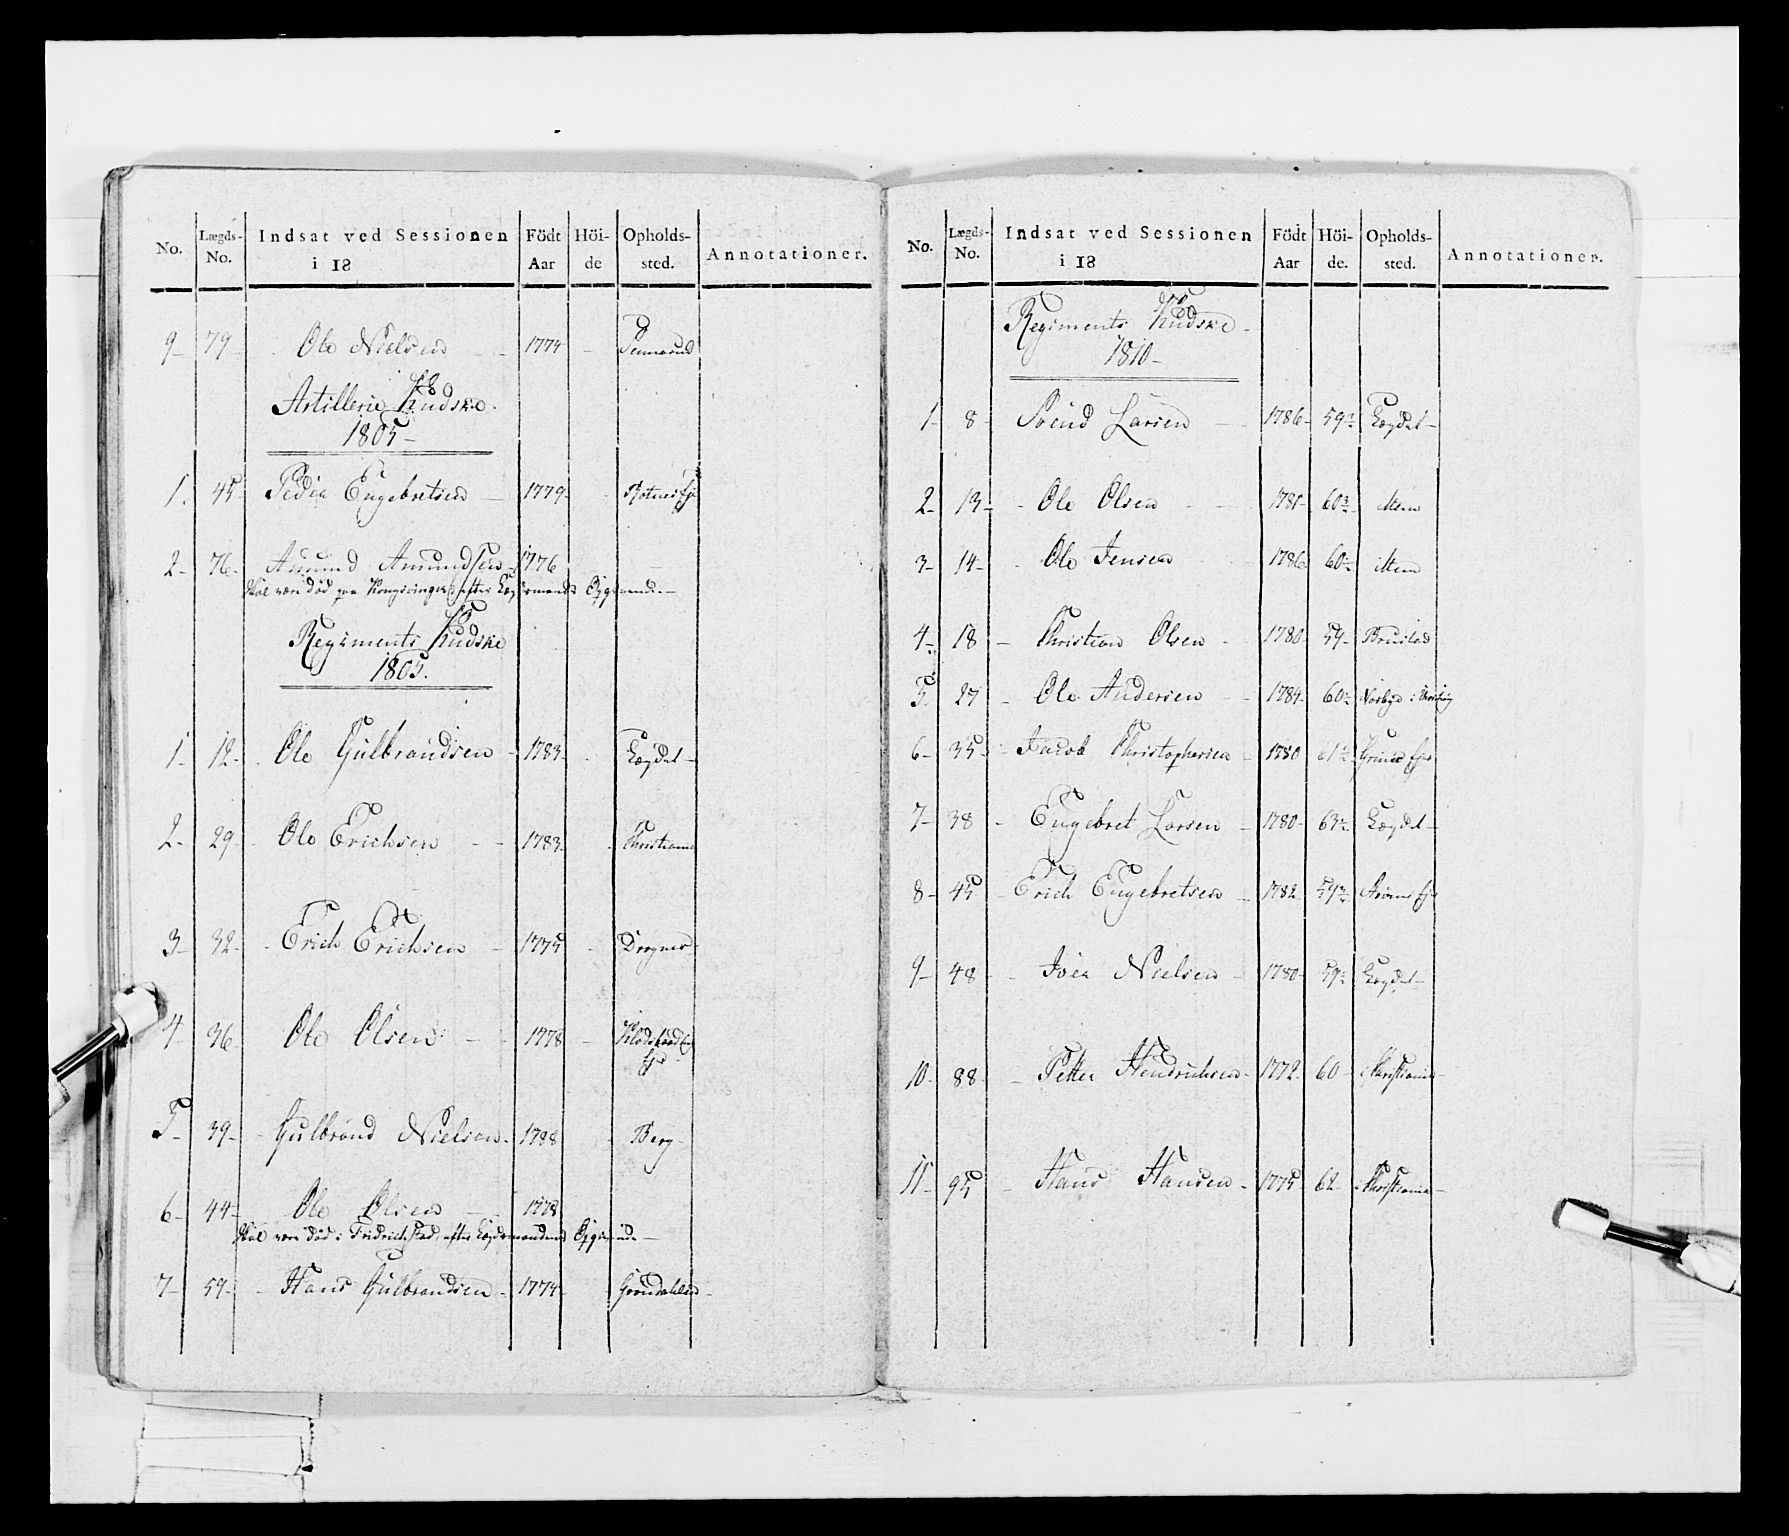 No. Lægds-No. Indsat ved Sessionen i 18 Födt Aar Höi-de Opholds-sted. Annotationer.
9- 79- Ole Nielsen 1774
Artillerie Kudske.
1805-
1. 45- Peder Engebretsen 1779-
2- 76- Amund Amundsen 1776
Skal være død paa Kongsvinger, efter Lægdsmands Opgivende.-
Regiments Kudske
1805.
1- 12- Ole Gulbrandsen 1783- Lægdet-
2- 29- Ole Erichsen 1783- Christiania
3- 32- Erich Erichsen 1775 Drognes-
4- 36- Ole Olsen 1778
5- 39- Gulbrand Nielsen 1788 Berg-
6- 44- Ole Olsen 1778
Skal være død i Fridrichstad, efter Lægdsmandens Opgivende-
7- 59- Hans Gulbrandsen 1774- Grøndahlen-
No. Lægds-No. Indsat ved Sessionen i 18 Födt Aar Höi-de. Opholds-sted. Annotationer.
Regiments Kudske-
1810-
1- 8- Svend Larsen 1786- 59 Lægdet-
2- 13- Ole Olsen 1781- 60 Mem
3- 14- Ole Jensen 1786- 60 Mem
4- 18- Christian Olsen 1780- 59- Brustad
5- 27- Ole Andersen 1784- 60
6- 35- Jacob Christophersen 1780 61
7- 38- Engebret Larsen 1780- 63 Lægdet-
8- 45- Erich Engebretsen 1782- 59
9- 48- Iver Nielsen 1780- 59 Lægdet-
10- 88- Petter Hendrichsen- 1772- 60- i Christiania-
11- 95- Hans Hansen- 1775- 62- i Christiania-